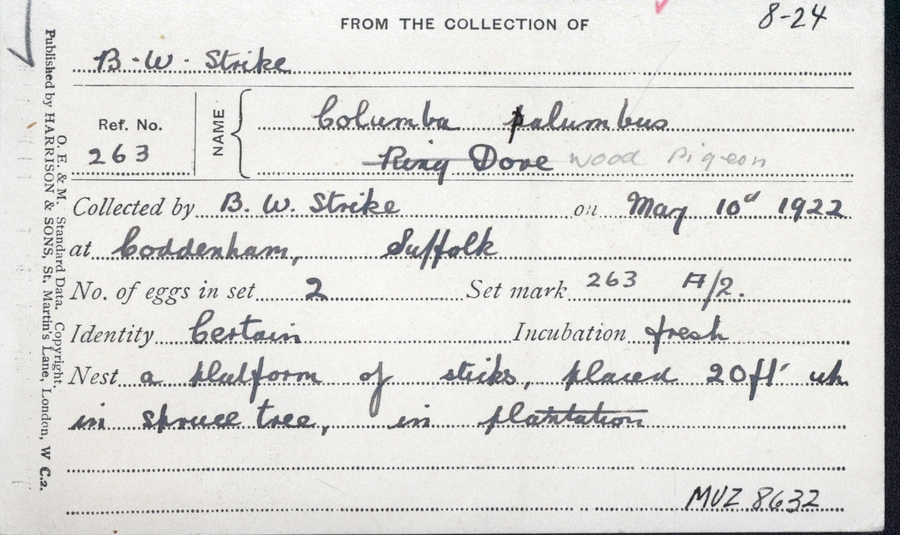 FROM THE COLLECTION OF
8-24
B. W. Strike
Ref. No.
263
NAME
Columba palumbus
Ring Dove wood pigeon
Collected by B. W. Strike on May 10th 1922
at Coddenham, Suffolk
No. of eggs in set 2 Set mark 263 A/2.
Identity Certain Incubation fresh
Nest a platform of sticks, placed 20ft up
in spruce tree, in plantation
MVZ 8632
O. E. & M. Standard Data. Copyright.
Published by HARRISON & SONS, St. Martin's Lane, London, W C.2.